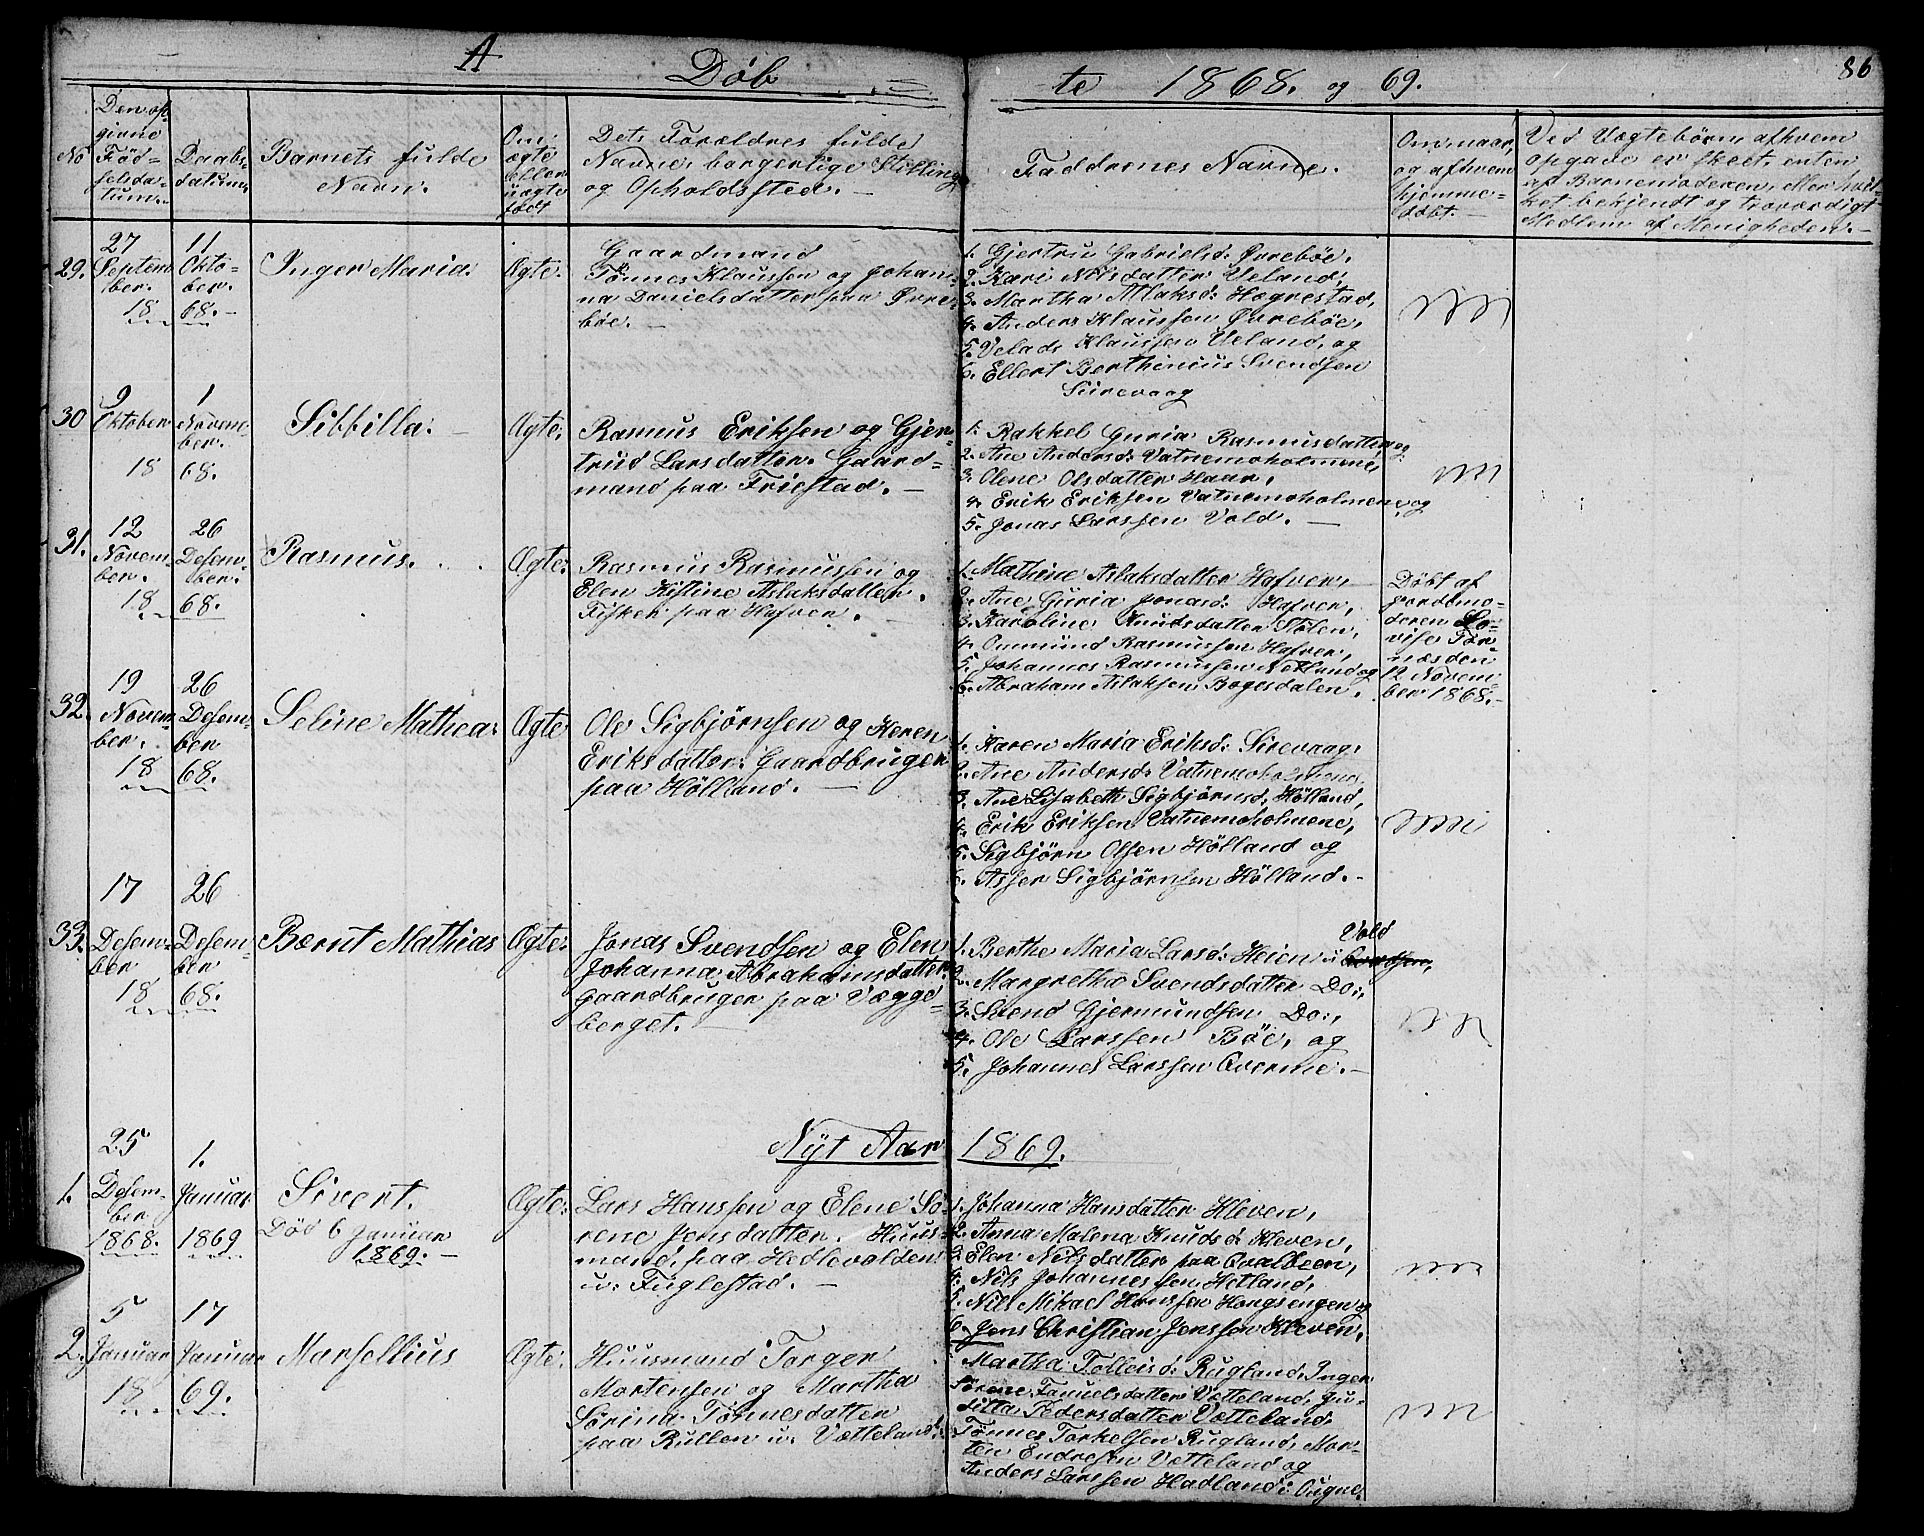 A
Döbte 1868. og 69.
86
No
Den op
givne
Fød-
selsda-
tum.
Daabs-
datum.
Barnets fulde
Navn.
Om
ægte
eller
uægte
født
Dets Forældres fulde
Navne, borgerlige Stilling
og Opholdssted. —
Faddrenes Navne.
Om, naar,
og af hvem
hjemme-
døbt. —
Ved Uægtebörn af hvem
opgave er skeet, enten
af Barnemoderen, eller hvil-
ket bekjendt og troværdigt
Medlem af Menigheden. —
29.
27
Septem
ber.
18
11
Okto-
ber.
68. -
Inger Maria.
Ægte.
Gaardmand
Tönnes Klaussen og Johan-
na Danielsdatter paa Øvre-
böe. —
1. Gjertru Gabrielsd: Øvreböe.
2. Kari Nilsdatter Ueland,
3. Martha Atlaksd: Hægrestad,
4. Anders Klaussen Øvreböe,
5. Velads Klaussen Ueland, og
6. Ellert Berthinius Svendsen
Sirevaag
30
9
Oktober
18
1
Novem-
ber.
68.
Sibbilla.
Ægte.
Rasmus Eriksen og Gjer-
trud Larsdatter. Gaard-
mand paa Friestad. —
1. Rakkel Guria Rasmusdatter
2. Ane Andersd: Vatnemoholmene,
3. Olene Olsdatter Haar,
4. Erik Eriksen Vatnemoholmene, og
5. Jonas Larssen Vold. —
31.
12
Novem-
ber.
18
26
Desem-
ber.
68.
Rasmus.
Ægte.
Rasmus Rasmussen og
Elen Kistine Aslaksdatter.
Fisker paa Hafven. —
1. Mathine Aslaksdatter Hafven,
2. Ane Guria Jonasd: Hafven,
3. Karoline Knudsdatter Stölen,
4. Ommund Rasmussen Hafven,
5. Johannes Rasmussen Netland og
6. Abraham Aslaksen Bogesdalen.
Döbt af
Jordemo-
deren Lo-
vise Tør-
næs den
12 Novem
ber 1868. -
32.
19
Novem-
ber.
18
26
Desem-
ber
68.
Seline Mathea.
Ægte
Ole Sigbjörnsen og Keren
Eriksdatter. Gaardbruger
paa Hölland. —
1. Karen Maria Eriksd: Sirevaag,
2. Ane Andersd: Vatnemoholmene
3. Ane Lisabeth Sigbjörnsd. Hölland,
4. Erik Eriksen Vatnemoholmene,
5. Sigbjörn Olsen Hölland og
6. Asser Sigbjörnsen Hölland. -
33.
17
Desem-
ber
18
26
Desem-
ber
68.
Bærnt Mathias
Ægte.
Jonas Svendsen og Elen
Johanna Abrahamsdatter.
Gaardbruger paa Vægge-
berget. —
Vold
1. Berthe Maria Larsd: Heien i
2. Margretha Svendsdatter Do:,
3. Svend Gjermundsen Do:,
4. Ole Larssen Böe, og
5. Johannes Larssen Qverme. -
Nyt Aar 1869.
1.
25
Desem-
ber
1868.
1.
Januar
1869
Sivert.
Död 6 Januar
1869. —
Ægte.
Lars Hanssen og Elene Sö-
rene Jensdatter. Huus-
mand, paa Hedlevolden
u. Fuglestad. —
1. Johanna Hansdatter Kleven,
2. Anna Malena Knudsd: Kleven,
3. Elen Nilsdatter paa Qvalbeen,
4. Nils Johannessen Hetland,
5. Nil Mikael Hanssen Hongsengen og
6. Jens Christian Jenssen Kleven.
2.
5
Januar
18
17
Januar
69.
Marsellius
Ægte.
Huusmand Torger
Mortensen og Martha
Sörina Tönnesdatter
paa Rullen u. Vætteland.
Martha Tolleivsd: Rugland, Inger
Sörene Tanuelsdatter Vætteland, Ju-
ditta Pedersdatter Vætteland,
Tönnes Torkelsen Rugland, Mor-
ten Endresen Vætteland og
Anders Larssen Hadland i Ougne.